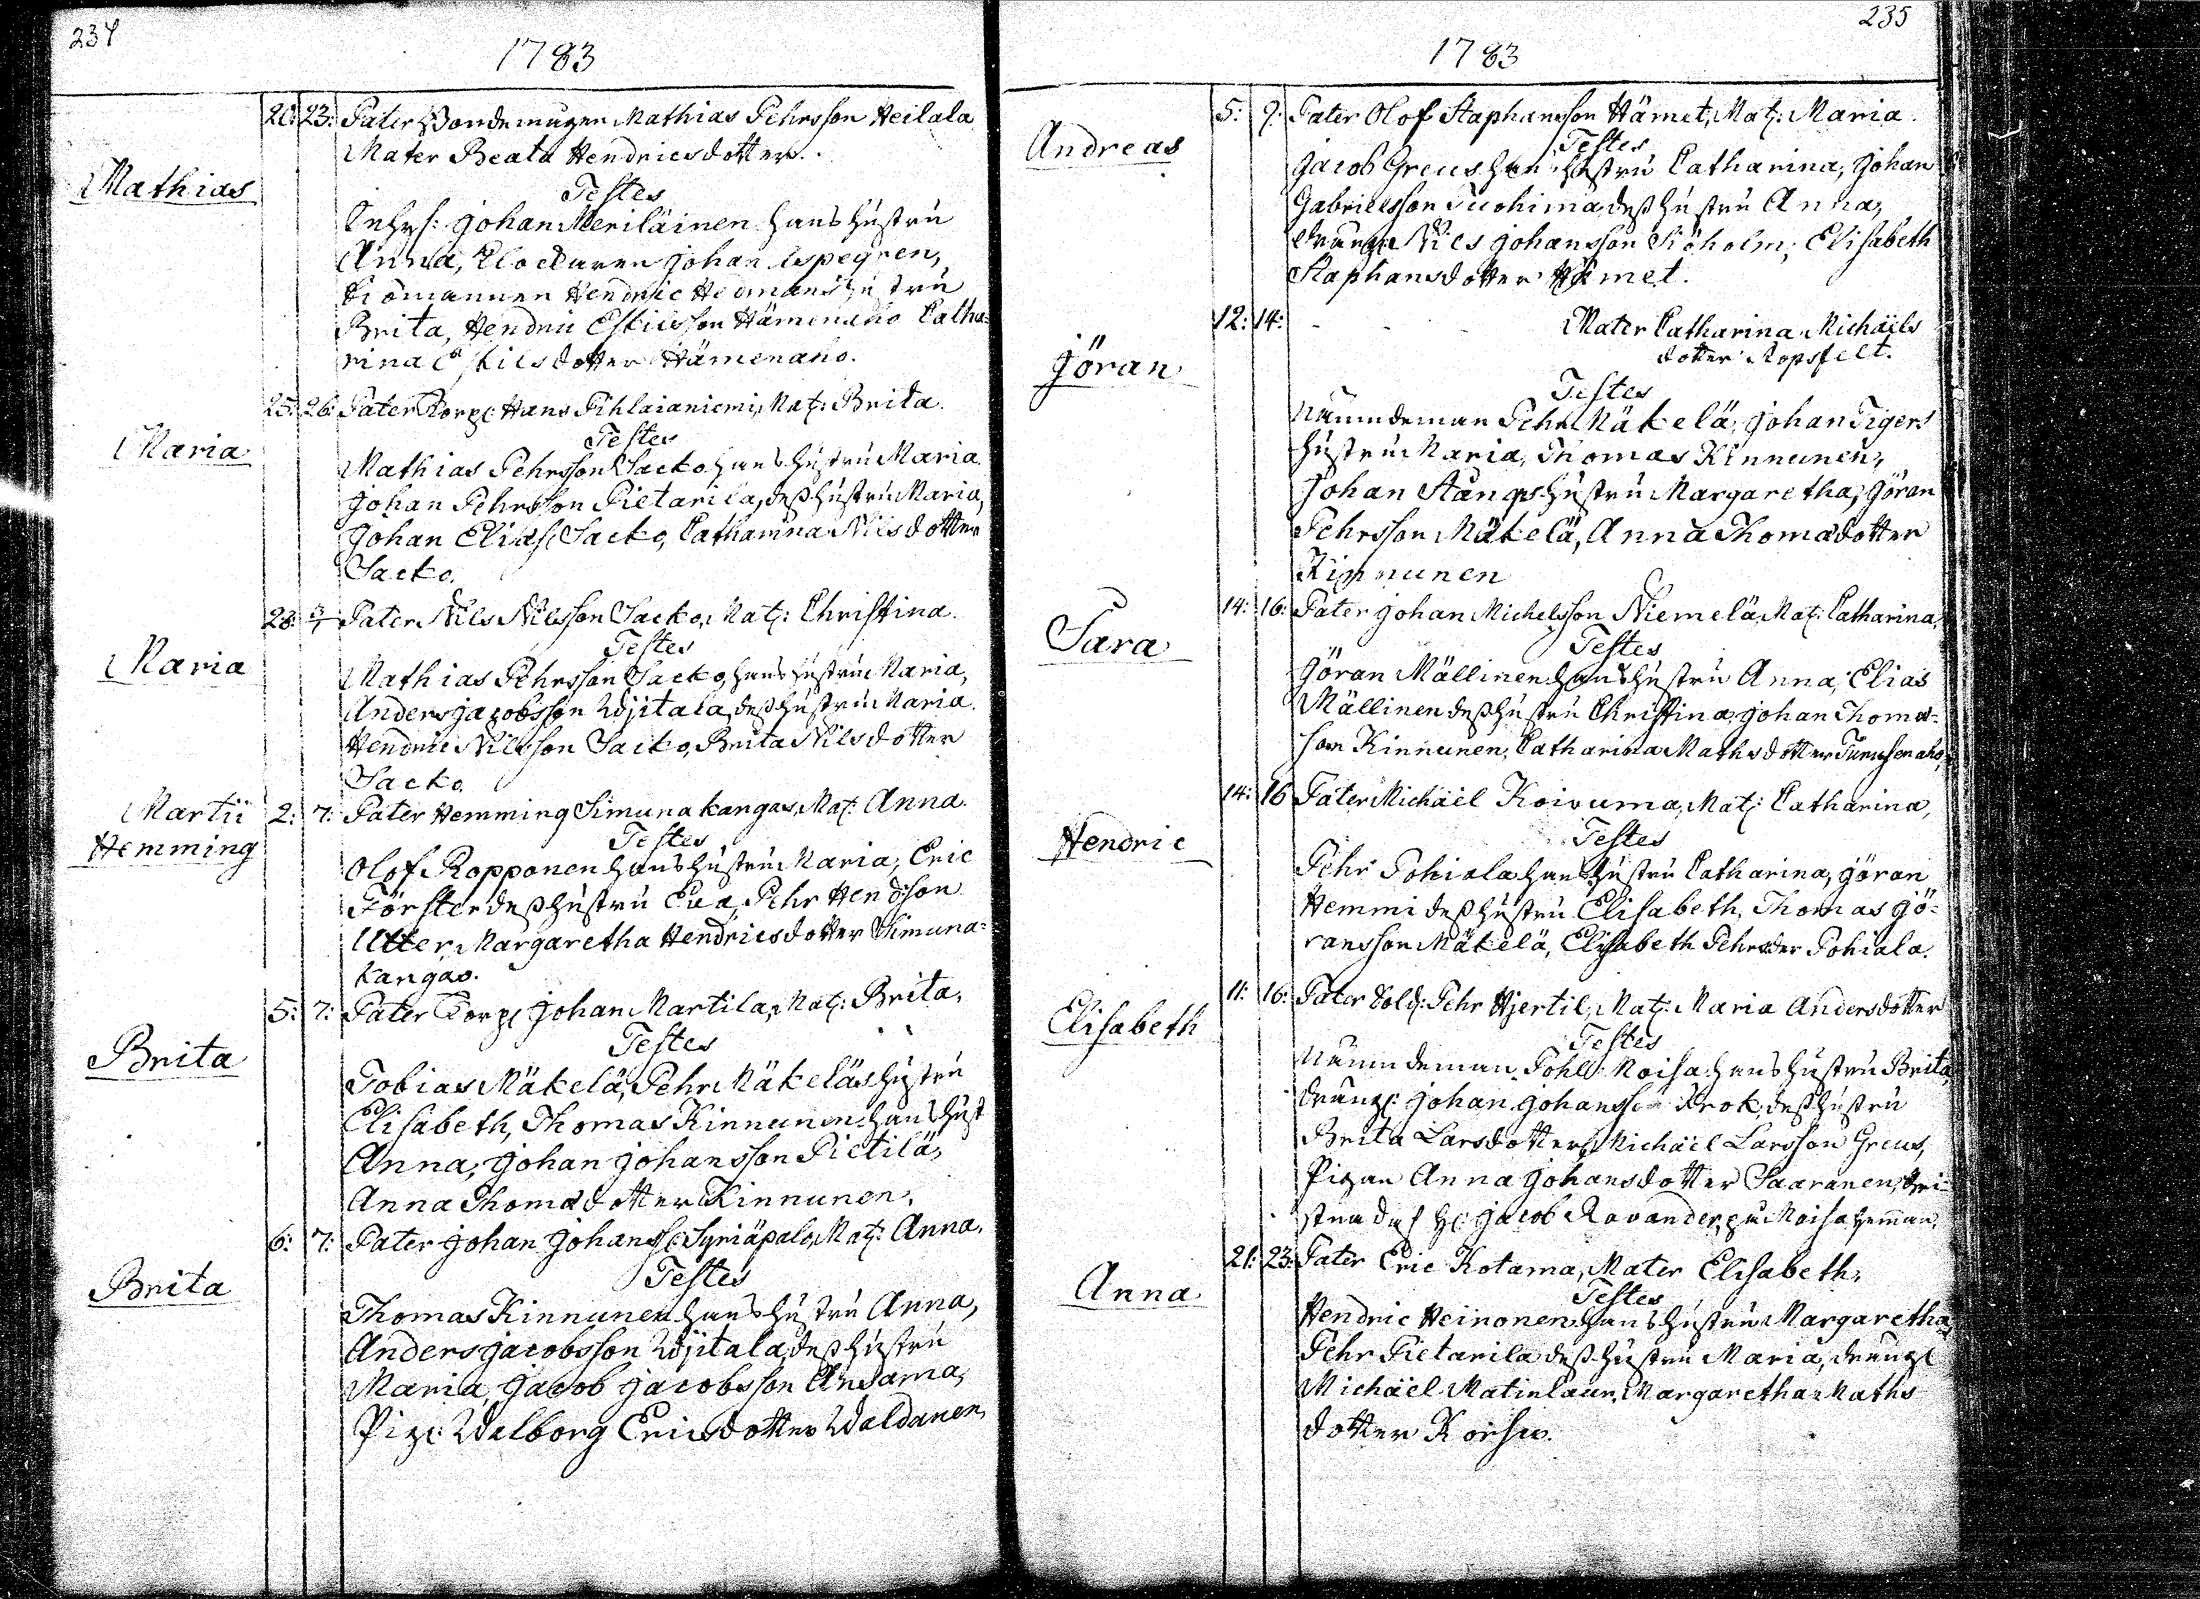 234
1783
20: 23: Pater Bondemågen Mathias Pehrsson Heilala
Mater Beata Hendricsdotter.
Mathias
Testes
Johan Meriläinen hans hustru
Anna, Klockaren Johan Aspegren,
Hendric Hedmans hustru
Brita, Hendric Eskilsson Hämenaho Catha-
rina Eskilsdotter Hämenaho.
25: 26: Pater Korpr: Hans Pihlaianiemi, Mat: Brita.
Maria
Testes
Mathias Pehrsson Sacko hans hustru Maria
Johan Pehrsson Pietarila, dess hustru Maria,
Johan Eliass: Sacko, Catharina Nilsdotter
Sacko.
28: 3/1 Pater Nils Nilsson Sacko, Mat: Christina.
Maria
Testes
Mathias Pehrsson Sacko, hans hustru Maria,
Anders Jacobsson Wijtala, dess hustru Maria.
Hendric Nilsson Sacko, Brita Nilsdotter
Sacko.
Martii 2: 7: Pater Hemming Simunakangas, Mat: Anna.
Hemming
Testes
Olof Ropponen hans hustru Maria, Eric
Förster dess hustru Eva, Pehr Hendsson
Utter, Margaretha Hendricsdotter Simuna-
kangas.
5: 7: Pater Korpr Johan Martila, Mat: Brita,
Brita
Testes
Tobias Mäkelä, Pehr Mäkeläs hustru
Elisabeth, Thomas Kinnunen hans hust
Anna, Johan Johansson Pietilä,
Anna Thomædotter Kinnunen.
6: 7: Pater Johan Johanss: Syriäpalo, Mat: Anna.
Brita
Testes
Thomas Kinnunen hans hustru Anna,
Anders Jacobsson Wijtala, dess hustru
Maria, Jacob Jacobsson Ansama,
Pig: Walborg Ericsdotter Waldanen
235
1783
5: 9: Pater Olof Staphansson Hämet, Mat: Maria.
Andreas
Testes
Jacob Greus hans hustru Catharina, Johan
Gabrielsson Tuohima, dess hustru Anna,
Drängen Nils Johansson Siöholm, Elisabeth
Staphansdotter Hämet.
12: 14: - - - Mater Catharina Michäels
dotter Ropsfelt.
Jöran
Testes
Nämndeman Pehr Mäkelä, Johan Tigers
hustru Maria, Thomas Kinnunen,
Johan Stångs hustru Margaretha, Jöran
Pehrsson Mäkelä, Anna Thomædotter
Kinnunen
14: 16: Pater Johan Michelsson Niemelä, Mat: Catharina,
Sara
Testes
Jöran Mällinen hans hustru Anna, Elias
Mällinen dess hustru Christina, Johan Thomæ-
son Kinnunen, Catharina Mathsdotter Turusenaho,
14: 16 Pater Michäel Koivuma, Mat: Catharina,
Hendric
Testes
Pehr Pohiala hans hustru Catharina, Jöran
Hemmi dess hustru Elisabeth, Thomas Jö-
ransson Mäkelä, Elisabeth Pehrsder Pohiala.
11: 16: Pater Sold: Pehr Hjertil, Mat: Maria Andersdotter
Elisabeth
Testes
Nämndeman Pohl Moisa hans hustru Brita,
Dräng: Johan Johansson Krok, dess hustru
Brita Larsdotter, Michäel Larsson Greus,
Pigan Anna Johansdotter Saaranen,
Jacob Rovander, på Moisa heman.
21: 23: Pater Eric Kotama, Mater Elisabeth,
Anna
Testes
Hendric Heinonen hans hustru Margaretha,
Pehr Pietarila dess hustru Maria, Dräng:
Michäel Matinlaur, Margaretha Maths
dotter Korsu.